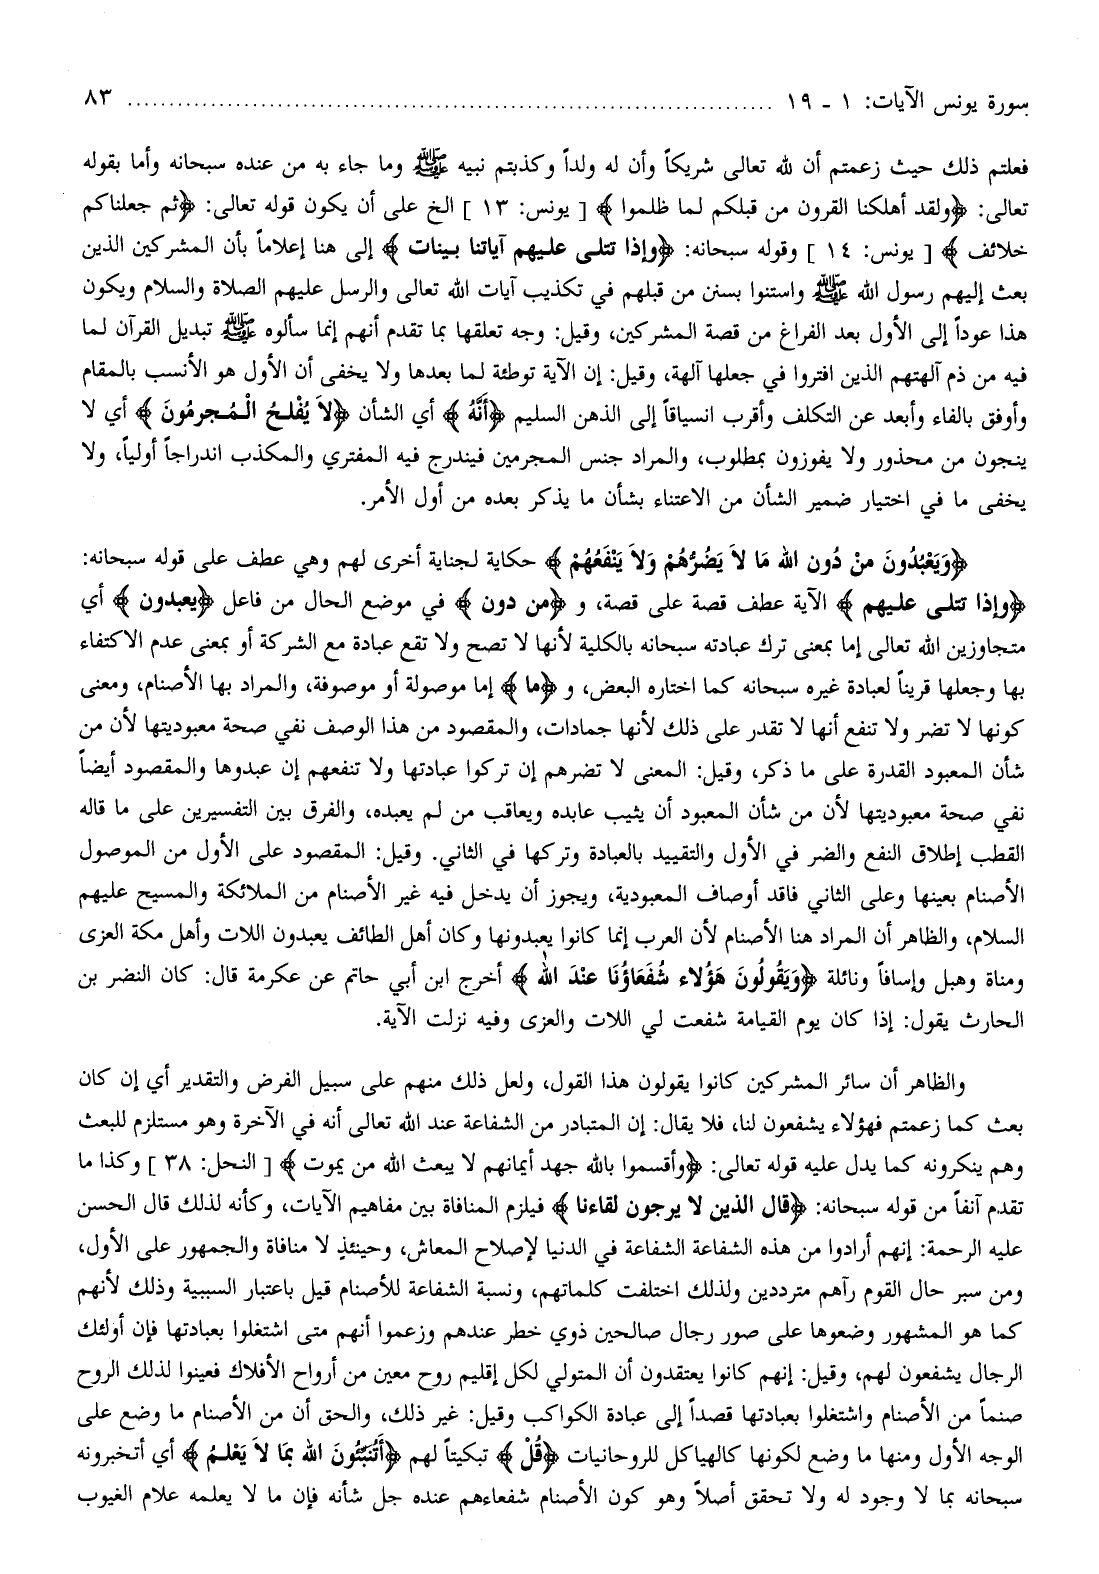 سورة يونس الآيات: ١ - ١٩ ........................................................................ ٨٣
فعلتم ذلك حيث زعمتم أن لله تعالى شريكاً وأن له ولداً وكذبتم نبيه ﷺ وما جاء به من عنده سبحانه وأما بقوله
تعالى: ﴿ولقد أهلكنا القرون من قبلكم لما ظلموا﴾ [ يونس: ١٣ ] الخ على أن يكون قوله تعالى: ﴿ثم جعلناكم
خلائف ﴾ [ يونس: ١٤ ] وقوله سبحانه: ﴿وإذا تتلى عليهم آياتنا بينات ﴾ إلى هنا إعلاماً بأن المشركين الذين
بعث إليهم رسول الله ﷺ واستنوا بسنن من قبلهم في تكذيب آيات الله تعالى والرسل عليهم الصلاة والسلام ويكون
هذا عوداً إلى الأول بعد الفراغ من قصة المشركين، وقيل: وجه تعلقها بما تقدم أنهم إنما سألوه ﷺ تبديل القرآن لما
فيه من ذم آلهتهم الذين افتروا في جعلها آلهة، وقيل: إن الآية توطئة لما بعدها ولا يخفى أن الأول هو الأنسب بالمقام
وأوفق بالفاء وأبعد عن التكلف وأقرب انسياقاً إلى الذهن السليم ﴿أَنَّهُ ﴾ أي الشأن ﴿لاَ يُفْلحُ الْمُجرمُونَ ﴾ أي لا
ينجون من محذور ولا يفوزون بمطلوب، والمراد جنس المجرمين فيندرج فيه المفتري والمكذب اندراجاً أولياً، ولا
يخفى ما في اختيار ضمير الشأن من الاعتناء بشأن ما يذكر بعده من أول الأمر.
﴿وَيَعْبُدُونَ منْ دُون الله مَا لاَ يَضُرُّهُمْ وَلاَ يَنْفَعُهُمْ ﴾ حكاية لجناية أخرى لهم وهي عطف على قوله سبحانه:
﴿وإذا تتلى عليهم ﴾ الآية عطف قصة على قصة، و ﴿من دون ﴾ في موضع الحال من فاعل ﴿يعبدون ﴾ أي
متجاوزين الله تعالى إما بمعنى ترك عبادته سبحانه بالكلية لأنها لا تصح ولا تقع عبادة مع الشركة أو بمعنى عدم الاكتفاء
بها وجعلها قريناً لعبادة غيره سبحانه كما اختاره البعض، و ﴿ما ﴾ إما موصولة أو موصوفة، والمراد بها الأصنام، ومعنى
كونها لا تضر ولا تنفع أنها لا تقدر على ذلك لأنها جمادات، والمقصود من هذا الوصف نفي صحة معبوديتها لأن من
شأن المعبود القدرة على ما ذكر، وقيل: المعنى لا تضرهم إن تركوا عبادتها ولا تنفعهم إن عبدوها والمقصود أيضاً
نفي صحة معبوديتها لأن من شأن المعبود أن يثيب عابده ويعاقب من لم يعبده، والفرق بين التفسيرين على ما قاله
القطب إطلاق النفع والضر في الأول والتقييد بالعبادة وتركها في الثاني. وقيل: المقصود على الأول من الموصول
الأصنام بعينها وعلى الثاني فاقد أوصاف المعبودية، ويجوز أن يدخل فيه غير الأصنام من الملائكة والمسيح عليهم
السلام، والظاهر أن المراد هنا الأصنام لأن العرب إنما كانوا يعبدونها وكان أهل الطائف يعبدون اللات وأهل مكة العزى
ومناة وهبل وإسافاً ونائلة ﴿وَيَقُولُونَ هَؤُلاء شُفَعَاؤُنَا عنْدَ الله ﴾ أخرج ابن أبي حاتم عن عكرمة قال: كان النضر بن
الحارث يقول: إذا كان يوم القيامة شفعت لي اللات والعزى وفيه نزلت الآية.
والظاهر أن سائر المشركين كانوا يقولون هذا القول، ولعل ذلك منهم على سبيل الفرض والتقدير أي إن كان
بعث كما زعمتم فهؤلاء يشفعون لنا، فلا يقال: إن المتبادر من الشفاعة عند الله تعالى أنه في الآخرة وهو مستلزم للبعث
وهم ينكرونه كما يدل عليه قوله تعالى: ﴿وأقسموا بالله جهد أيمانهم لا يبعث الله من يموت ﴾ [ النحل: ٣٨ ] وكذا ما
تقدم آنفاً من قوله سبحانه: ﴿قال الذين لا يرجون لقاءنا ﴾ فيلزم المنافاة بين مفاهيم الآيات، وكأنه لذلك قال الحسن
عليه الرحمة: إنهم أرادوا من هذه الشفاعة الشفاعة في الدنيا لإصلاح المعاش، وحينئذٍ لا منافاة والجمهور على الأول،
ومن سبر حال القوم رآهم مترددين ولذلك اختلفت كلماتهم، ونسبة الشفاعة للأصنام قيل باعتبار السببية وذلك لأنهم
كما هو المشهور وضعوها على صور رجال صالحين ذوي خطر عندهم وزعموا أنهم متى اشتغلوا بعبادتها فإن أولئك
الرجال يشفعون لهم، وقيل: إنهم كانوا يعتقدون أن المتولي لكل إقليم روح معين من أرواح الأفلاك فعينوا لذلك الروح
صنماً من الأصنام واشتغلوا بعبادتها قصداً إلى عبادة الكواكب وقيل: غير ذلك، والحق أن من الأصنام ما وضع على
الوجه الأول ومنها ما وضع لكونها كالهياكل للروحانيات ﴿قُلْ ﴾ تبكيتاً لهم ﴿أَتُنَبِّئُونَ الله بمَا لاَ يَعْلمُ ﴾ أي أتخبرونه
سبحانه بما لا وجود له ولا تحقق أصلاً وهو كون الأصنام شفعاءهم عنده جل شأنه فإن ما لا يعلمه علام الغيوب